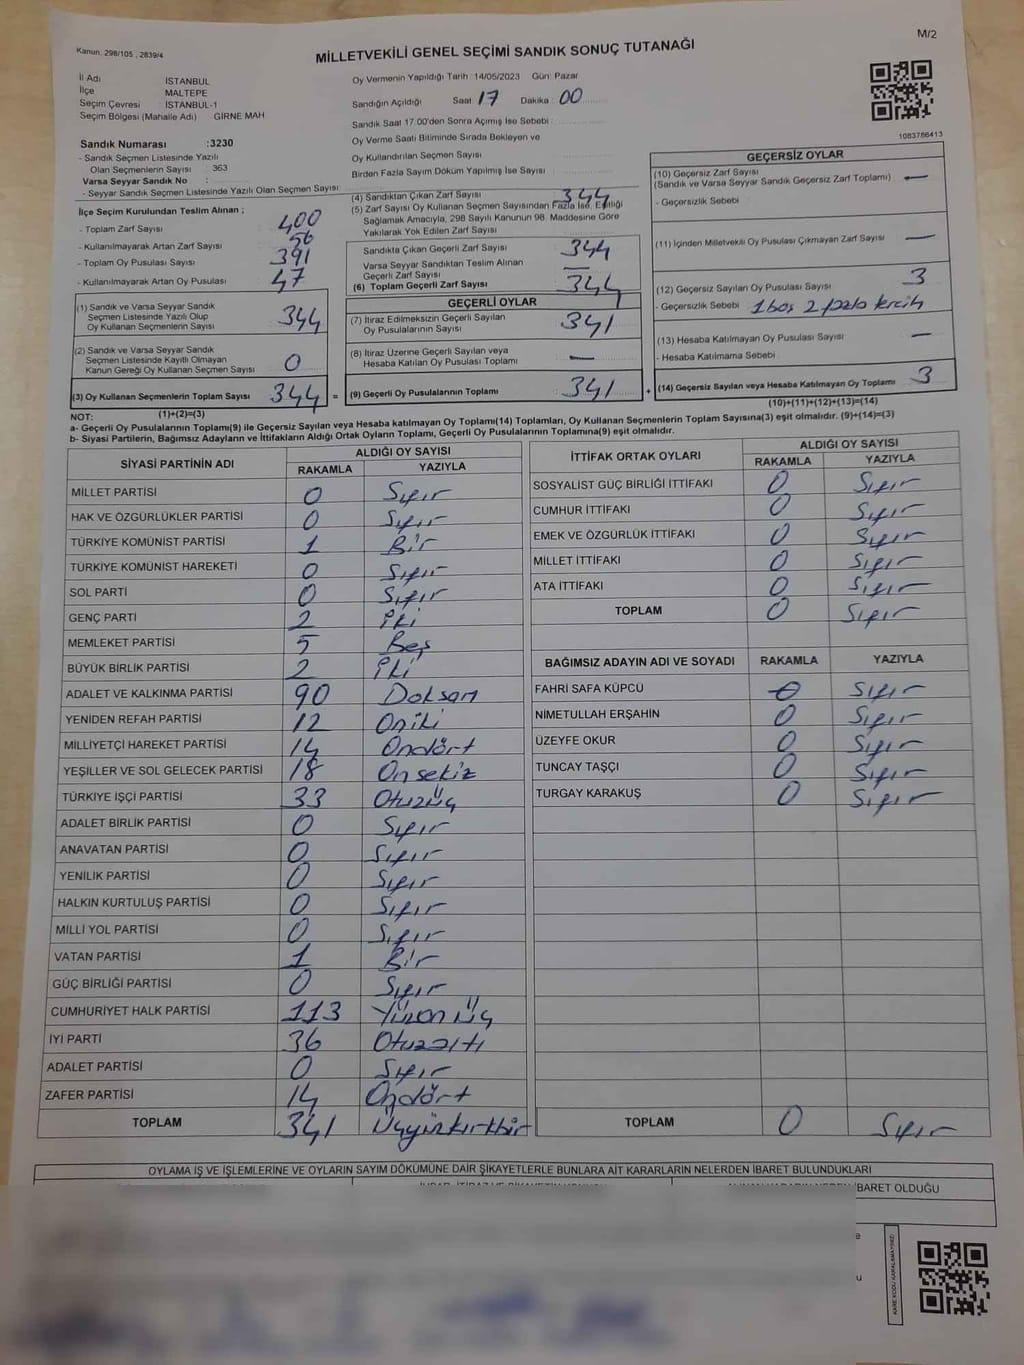 Kanun: 298/105 , 2839/4
MİLLETVEKİLİ GENEL SEÇİMİ SANDIK SONUÇ TUTANAĞI
M/2
İl Adı İSTANBUL
İlçe MALTEPE
Seçim Çevresi : İSTANBUL-1
Seçim Bölgesi (Mahalle Adı) GİRNE MAH
Sandık Numarası :3230
- Sandık Seçmen Listesinde Yazılı
Olan Seçmenlerin Sayısı : 363
Varsa Seyyar Sandık No :
- Seyyar Sandık Seçmen Listesinde Yazılı Olan Seçmen Sayısı :
Oy Vermenin Yapıldığı Tarih : 14/05/2023 Gün: Pazar
Sandığın Açıldığı Saat: 17 Dakika : 00
Sandık Saat 17:00'den Sonra Açımış İse Sebebi :
Oy Verme Saati Bitiminde Sırada Bekleyen ve
Oy Kullandırılan Seçmen Sayısı :
Birden Fazla Sayım Döküm Yapılmış İse Sayısı :
1083786413
İlçe Seçim Kurulundan Teslim Alınan ;
- Toplam Zarf Sayısı : 400
- Kullanılmayarak Artan Zarf Sayısı : 56
- Toplam Oy Pusulası Sayısı : 391
- Kullanılmayarak Artan Oy Pusulası : 47
(1) Sandık ve Varsa Seyyar Sandık
Seçmen Listesinde Yazılı Olup
Oy Kullanan Seçmenlerin Sayısı : 344
(2) Sandık ve Varsa Seyyar Sandık
Seçmen Listesinde Kayıtlı Olmayan
Kanun Gereği Oy Kullanan Seçmen Sayısı : 0
(3) Oy Kullanan Seçmenlerin Toplam Sayısı : 344 =
(1)+(2)=(3)
(4) Sandıktan Çıkan Zarf Sayısı : 344
(5) Zarf Sayısı Oy Kullanan Seçmen Sayısından Fazla İse, Eşitliği
Sağlamak Amacıyla, 298 Sayılı Kanunun 98. Maddesine Göre
Yakılarak Yok Edilen Zarf Sayısı :
Sandıkta Çıkan Geçerli Zarf Sayısı : 344
Varsa Seyyar Sandıktan Teslim Alınan
Geçerli Zarf Sayısı : —
(6) Toplam Geçerli Zarf Sayısı : 344
GEÇERLİ OYLAR
(7) İtiraz Edilmeksizin Geçerli Sayılan
Oy Pusulalarının Sayısı : 341
(8) İtiraz Üzerine Geçerli Sayılan veya
Hesaba Katılan Oy Pusulaları Toplamı : —
(9) Geçerli Oy Pusulalarının Toplamı : 341 +
GEÇERSİZ OYLAR
(10) Geçersiz Zarf Sayısı : —
(Sandık ve Varsa Seyyar Sandık Geçersiz Zarf Toplamı)
- Geçersizlik Sebebi :
(11) İçinden Milletvekili Oy Pusulası Çıkmayan Zarf Sayısı : —
(12) Geçersiz Sayılan Oy Pusulası Sayısı : 3
- Geçersizlik Sebebi : 1 boş 2 fazla tercih
(13) Hesaba Katılmayan Oy Pusulası Sayısı : —
- Hesaba Katılmama Sebebi :
(14) Geçersiz Sayılan veya Hesaba Katılmayan Oy Toplamı : 3
(10)+(11)+(12)+(13)=(14)
NOT:
a- Geçerli Oy Pusulalarının Toplamı(9) ile Geçersiz Sayılan veya Hesaba katılmayan Oy Toplamı(14) Toplamları, Oy Kullanan Seçmenlerin Toplam Sayısına(3) eşit olmalıdır. (9)+(14)=(3)
b- Siyasi Partilerin, Bağımsız Adayların ve İttifakların Aldığı Ortak Oyların Toplamı, Geçerli Oy Pusulalarının Toplamına(9) eşit olmalıdır.
SİYASİ PARTİNİN ADI ALDIĞI OY SAYISI
RAKAMLA YAZIYLA
MİLLET PARTİSİ 0 Sıfır
HAK VE ÖZGÜRLÜKLER PARTİSİ 0 Sıfır
TÜRKİYE KOMÜNİST PARTİSİ 1 Bir
TÜRKİYE KOMÜNİST HAREKETİ 0 Sıfır
SOL PARTİ 0 Sıfır
GENÇ PARTİ 2 İki
MEMLEKET PARTİSİ 5 Beş
BÜYÜK BİRLİK PARTİSİ 2 İki
ADALET VE KALKINMA PARTİSİ 90 Doksan
YENİDEN REFAH PARTİSİ 12 Oniki
MİLLİYETÇİ HAREKET PARTİSİ 14 Ondört
YEŞİLLER VE SOL GELECEK PARTİSİ 18 Onsekiz
TÜRKİYE İŞÇİ PARTİSİ 33 Otuzüç
ADALET BİRLİK PARTİSİ 0 Sıfır
ANAVATAN PARTİSİ 0 Sıfır
YENİLİK PARTİSİ 0 Sıfır
HALKIN KURTULUŞ PARTİSİ 0 Sıfır
MİLLİ YOL PARTİSİ 0 Sıfır
VATAN PARTİSİ 1 Bir
GÜÇ BİRLİĞİ PARTİSİ 0 Sıfır
CUMHURİYET HALK PARTİSİ 113 Yüzonüç
İYİ PARTİ 36 Otuzaltı
ADALET PARTİSİ 0 Sıfır
ZAFER PARTİSİ 14 Ondört
TOPLAM 341 Üçyüzkırkbir
İTTİFAK ORTAK OYLARI ALDIĞI OY SAYISI
RAKAMLA YAZIYLA
SOSYALİST GÜÇ BİRLİĞİ İTTİFAKI 0 Sıfır
CUMHUR İTTİFAKI 0 Sıfır
EMEK VE ÖZGÜRLÜK İTTİFAKI 0 Sıfır
MİLLET İTTİFAKI 0 Sıfır
ATA İTTİFAKI 0 Sıfır
TOPLAM 0 Sıfır
BAĞIMSIZ ADAYIN ADI VE SOYADI RAKAMLA YAZIYLA
FAHRİ SAFA KÜPCÜ 0 Sıfır
NİMETULLAH ERŞAHİN 0 Sıfır
ÜZEYFE OKUR 0 Sıfır
TUNCAY TAŞÇI 0 Sıfır
TURGAY KARAKUŞ 0 Sıfır
TOPLAM 0 Sıfır
OYLAMA İŞ VE İŞLEMLERİNE VE OYLARIN SAYIM DÖKÜMÜNE DAİR ŞİKAYETLERLE BUNLARA AİT KARARLARIN NELERDEN İBARET BULUNDUKLARI
İBARET OLDUĞU
KARE KODU KARALAMAYINIZ!